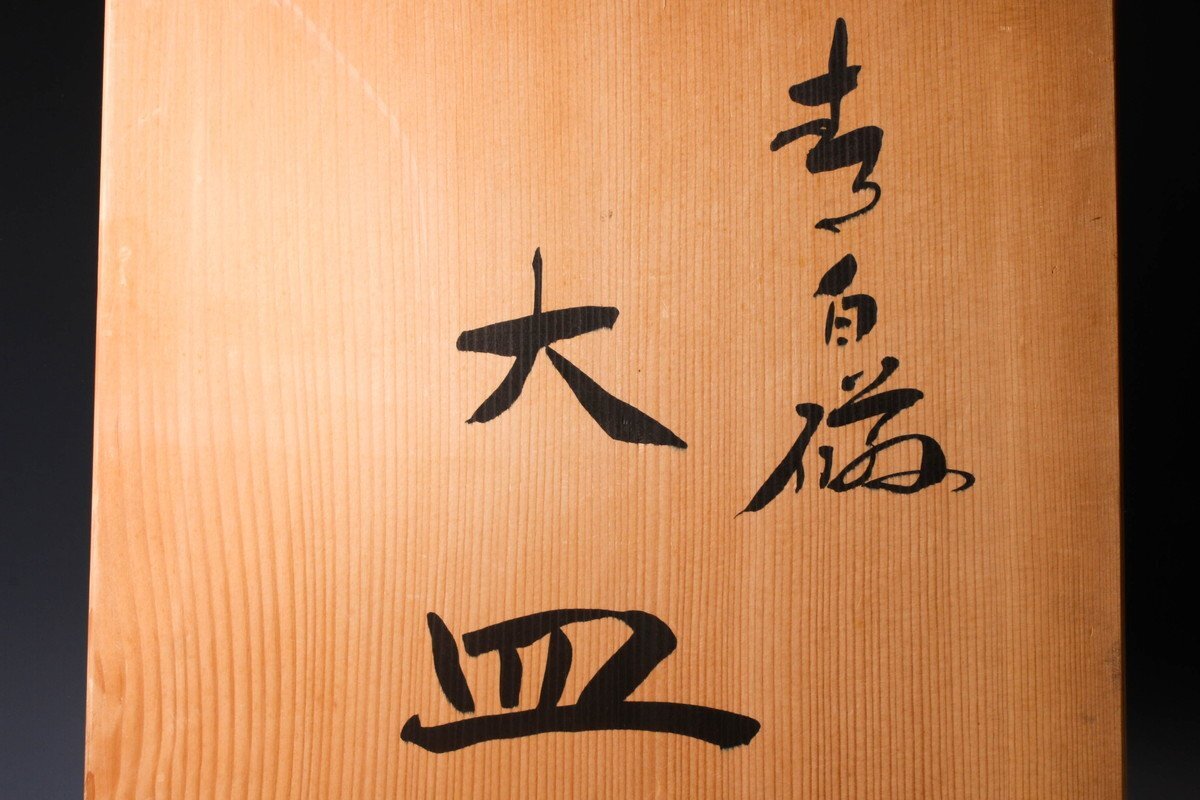 青白磁
大皿